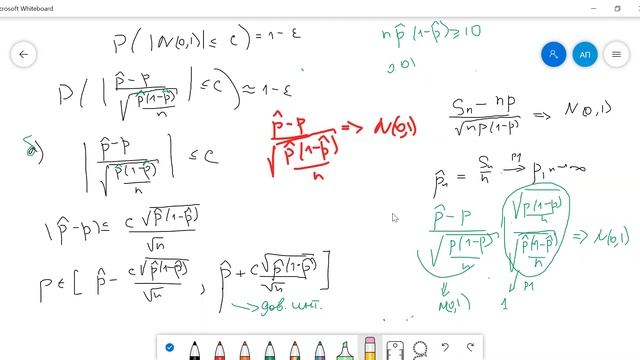 Microsoft Whiteboard
АП
P( |N(0,1)| ≤ c ) = 1 - ε
n p̂ (1-p̂) ≥ 10
P( | (p̂ - p) / √(p̂(1-p̂)/n) | ≤ c ) ≈ 1 - ε
(Sn - np) / √(np(1-p)) => N(0,1)
(p̂ - p) / √(p̂(1-p̂)/n) => N(0,1)
б) | (p̂ - p) / √(p̂(1-p̂)/n) | ≤ c
p̂n = Sn/n → p, n→∞
|p̂ - p| ≤ c√(p̂(1-p̂)) / √n
(p̂ - p) / √(p(1-p)/n) √(p(1-p)/n) / √(p̂(1-p̂)/n) => N(0,1)
p ∈ [ p̂ - c√(p̂(1-p̂)) / √n , p̂ + c√(p̂(1-p̂)) / √n ]
N(0,1) 1
→ дов. инт.